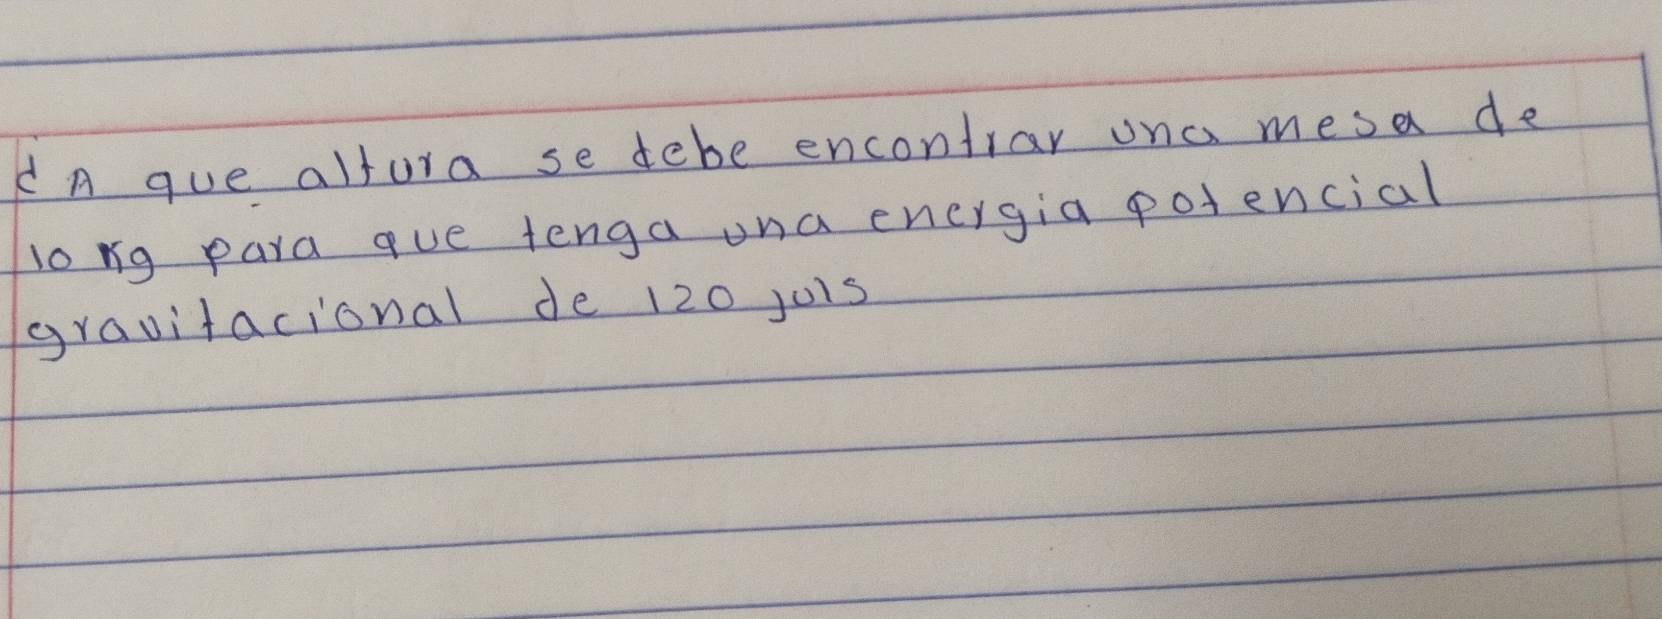 ¿A que altura se debe encontrar una mesa de
10 kg para que tenga una energia potencial
gravitacional de 120 juls